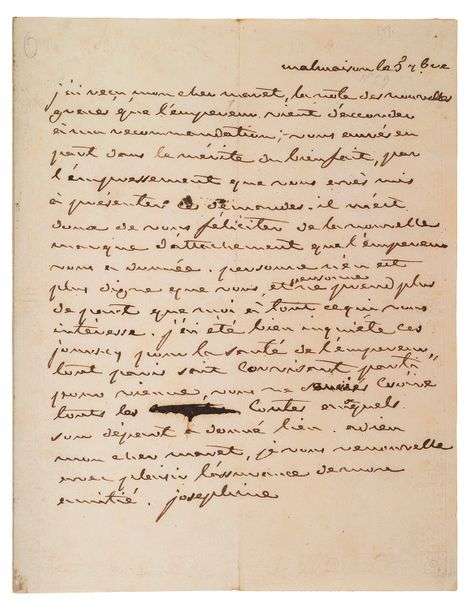 malmaison le 5 7bre
j'ai reçu mon cher maret, la note des nouvelles
graces que l'empereur vient d'accorder
à ma recommandation; vous entrés en
part dans le mérite du bienfait, par
l'empressement que vous avés mis
à présenter demandes. il m'est
doux de vous féliciter de la nouvelle
marque d'attachement que l'empereur
vous a donnée. personne n'en est
plus digne que vous, et personne ne prend plus
de part que moi à tout ce qui vous
intéresse. j'ai été bien inquiéte ces
jours-cy pour la santé de l'empereur
tout paris sait corvisart parti
pour vienne, vous ne sauriés croire
touts les contes auxquels
son départ a donné lieu. adieu
mon cher maret, je vous renouvelle
avec plaisir l'assurance de mon
amitié. joséphine